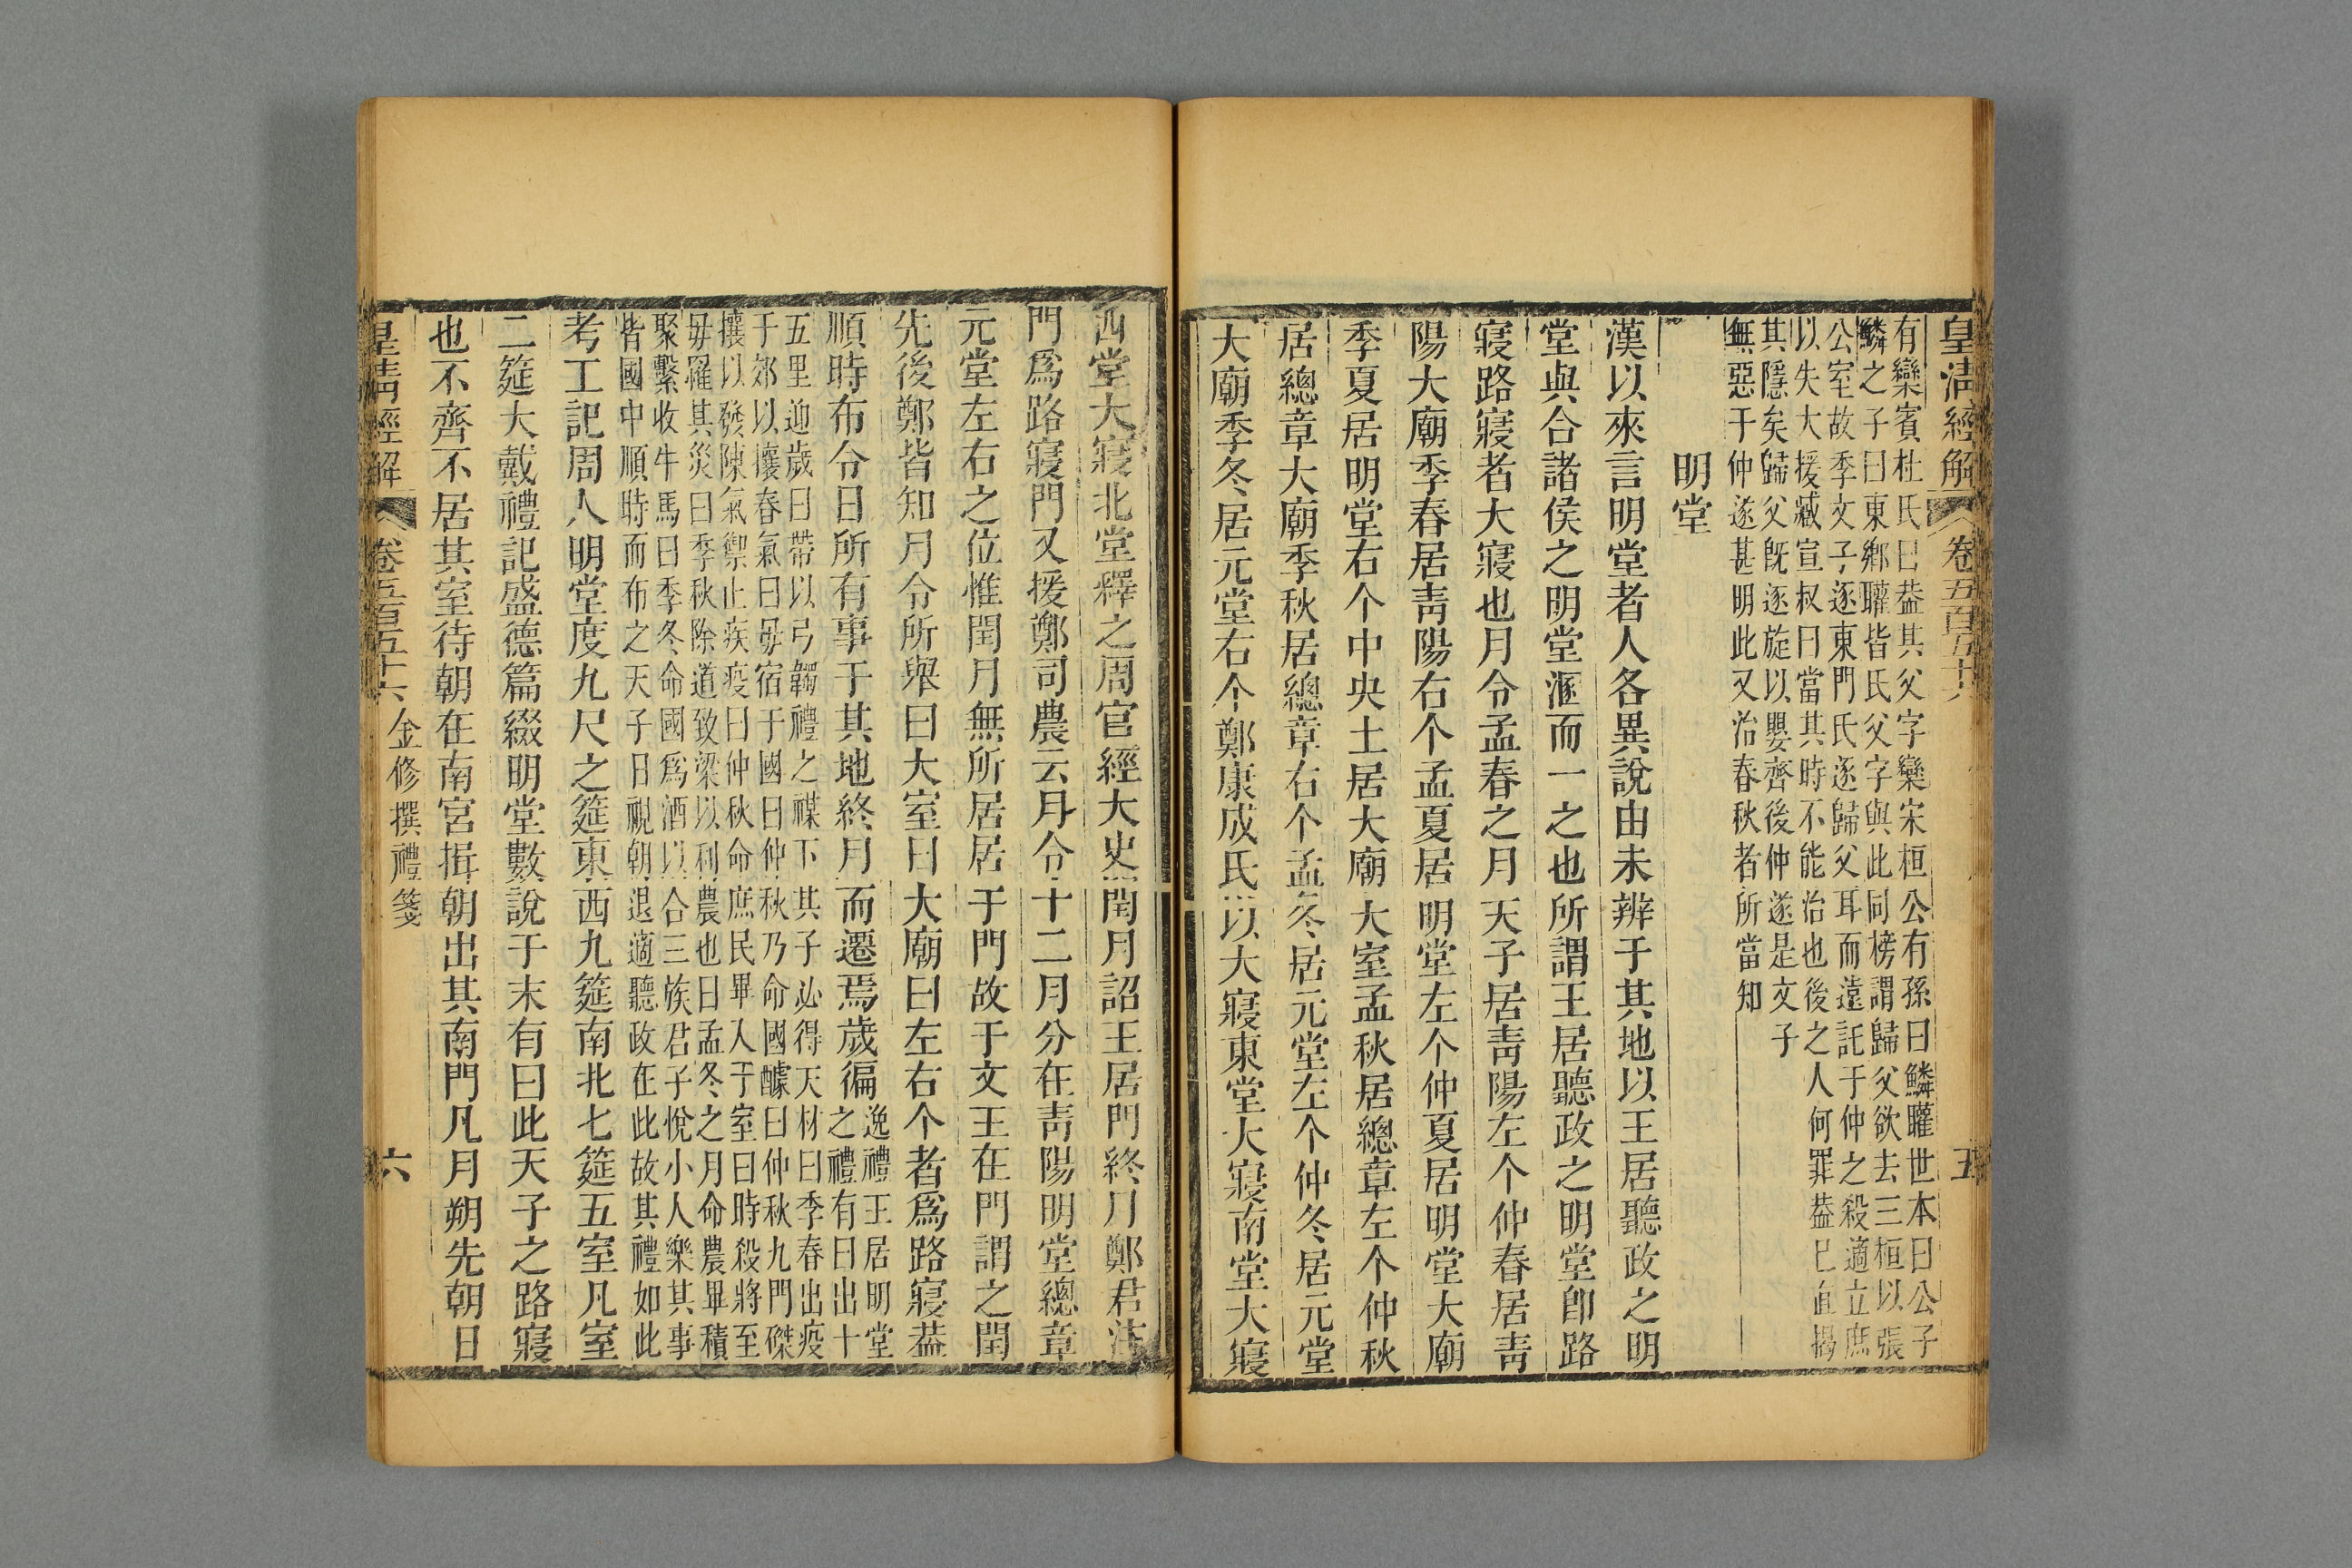 皇清經解 卷五百五十六 五
有欒賓杜氏曰葢其父字欒宋桓公有孫曰鱗矔世本曰公子
鱗之子曰東鄉矔皆氏父字與此同榜謂歸父欲去三桓以張
公室故季文子逐東門氏逐歸父耳而遠託于仲之殺適立庶
以失大援臧宣叔曰當其時不能治也後之人何罪葢已直揭
其隱矣歸父旣逐旋以嬰齊後仲遂是文子
無惡于仲遂甚明此又治春秋者所當知
明堂
漢以來言明堂者人各異說由未辨于其地以王居聽政之明
堂與合諸侯之明堂滙而一之也所謂王居聽政之明堂卽路
寢路寢者大寢也月令孟春之月天子居靑陽左个仲春居靑
陽大廟季春居靑陽右个孟夏居明堂左个仲夏居明堂大廟
季夏居明堂右个中央土居大廟大室孟秋居總章左个仲秋
居總章大廟季秋居總章右个孟冬居元堂左个仲冬居元堂
大廟季冬居元堂右个鄭康成氏以大寢東堂大寢南堂大寢
西堂大寢北堂釋之周官經大史閏月詔王居門終月鄭君注
門爲路寢門又援鄭司農云月令十二月分在靑陽明堂總章
元堂左右之位惟閏月無所居居于門故于文王在門謂之閏
先後鄭皆知月令所舉曰大室曰大廟曰左右个者爲路寢葢
順時布令日所有事于其地終月而遷焉歲徧逸禮王居明堂
之禮有曰出十
五里迎歲曰帶以弓韣禮之禖下其子必得天材曰季春出疫
于郊以攘春氣曰毋宿于國曰仲秋乃命國醵曰仲秋九門磔
攘以發陳氣禦止疾疫曰仲秋命庶民畢入于室曰時殺將至
毋罹其災曰季秋除道致梁以利農也曰孟冬之月命農畢積
聚繫收牛馬曰季冬命國爲酒以合三族君子悅小人樂其事
皆國中順時而布之天子日視朝退適聽政在此故其禮如此
考工記周人明堂度九尺之筵東西九筵南北七筵五室凡室
二筵大戴禮記盛德篇綴明堂數說于末有曰此天子之路寢
也不齊不居其室待朝在南宮揖朝出其南門凡月朔先朝日
皇清經解 卷五百五十六 金修撰禮箋 六